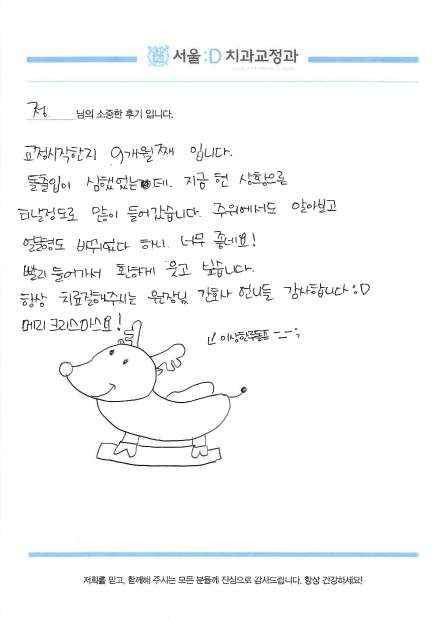 서울:D 치과교정과
정 님의 소중한 후기 입니다.
교정시작한지 9개월째 입니다.
돌출입이 심했었는데. 지금 현 상황으론
티날정도로 많이 들어갔습니다. 주위에서도 알아보고
얼굴형도 바뀌었다 하니. 너무 좋네요!
빨리 들어가서 환하게 웃고 싶습니다.
항상 치료잘해주시는 원장님 간호사 언니들 감사합니다 :D
메리 크리스마스요!
이상한 루돌프 ㅡㅡ;
저희를 믿고, 함께해 주시는 모든 분들께 진심으로 감사드립니다. 항상 건강하세요!